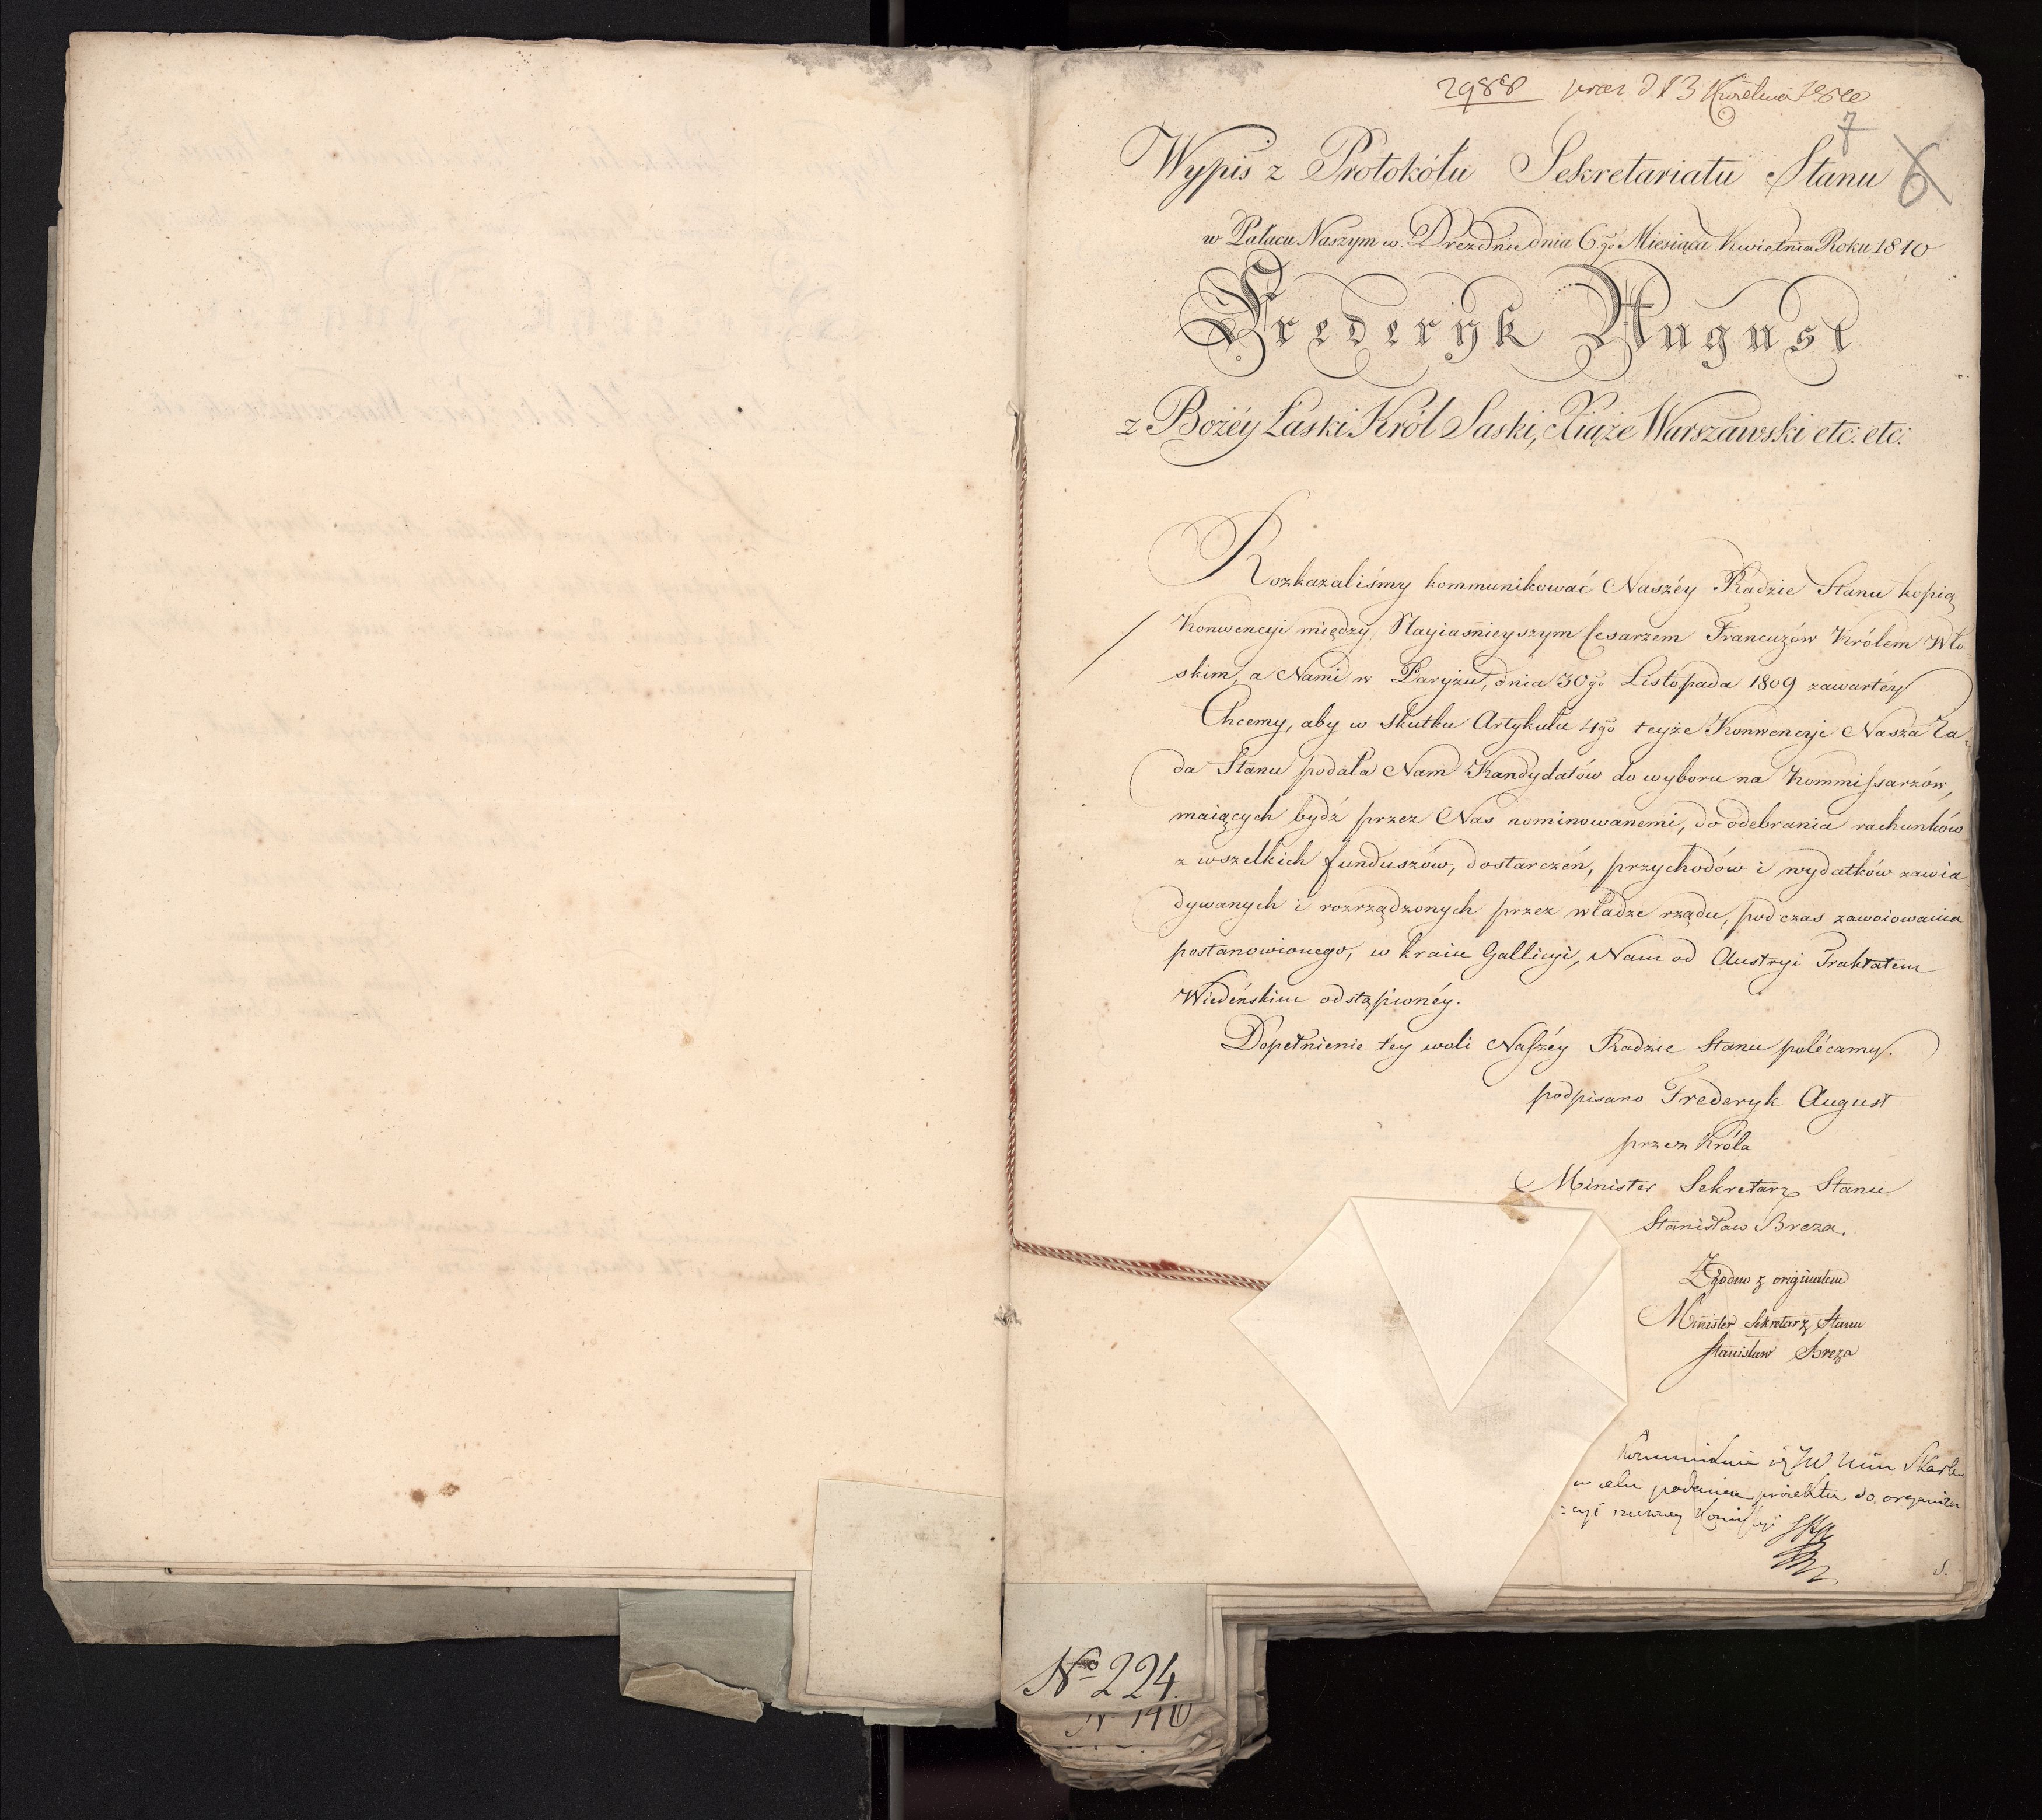 2988 præs d 13 Kwietnia 1810
7
Wypis z Protokółu Sekretariatu Stanu
6
w Pałacu Naszym w Dreznie dnia 6go Miesiąca Kwietnia Roku 1810
Frederyk August
z Bożéy Łaski Król Saski, Xiąże Warszawski etc: etc:
Rozkazaliśmy kommunikować Naszéy Radzie Stanu kopią
Konwencyi między Nayiaśnieyszym Cesarzem Francuzów Królem Wło
skim, a Nami w Paryżu, dnia 30go Listopada 1809 zawartéy
Chcemy, aby w skutku Artykułu 4go teyże Konwencyi Nasza Ra-
da Stanu podała Nam Kandydatów do wyboru na Kommissarzów,
maiących bydź przez Nas nominowanemi, do odebrania rachunków
z wszelkich funduszów, dostarczeń, przychodów i wydatków zawia-
dywanych i rozrządzonych przez władze rządu, podczas zawoiowania
postanowionego, w kraiu Gallicyi, Nam od Austryi Traktatem
Wiedeńskim odstąpionéy.
Dopełnienie tey woli Naszéy Radzie Stanu polécamy.
podpisano Frederyk August
przez Króla
Minister Sekretarz Stanu
Stanisław Breza.
Zgodno z originałem
Minister Sekretarz Stanu
Stanisław Breza
Kommunikuie się JW Min Skarbu
w celu podania proiektu do organiza
:cyi rzeczney Komissyi
S.
No 224.
N 140